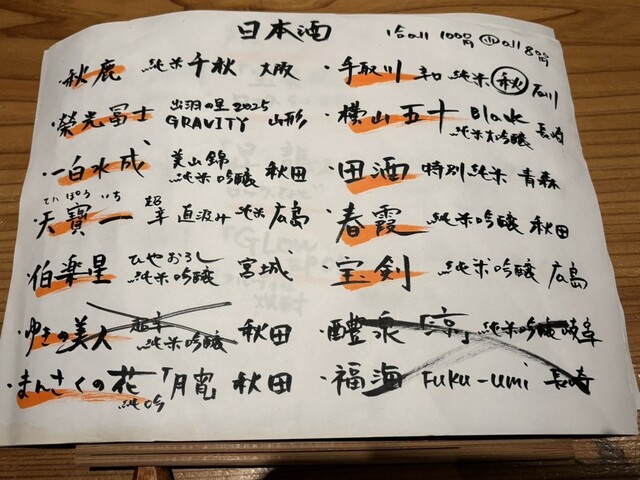 日本酒
1合all 1000円 ㊥all 8
・秋鹿 純米 千秋 大阪
・榮光冨士 出羽の里2025 GRAVITY 山形
・一白水成 美山錦 純米吟醸 秋田
てんぽう いち
・天寶一 超辛 直汲み 純米 広島
・伯楽星 ひやおろし 純米吟醸 宮城
・ゆきの美人 超辛 純米吟醸 秋田
・まんさくの花 純吟 「月竃 秋田
・手取川 辛口 純米 秋 石川
・横山五十 Black 純米大吟醸 長崎
・田酒 特別純米 青森
・春霞 純米吟醸 秋田
・宝剣 純米吟醸 広島
・醴泉 「涼」 純米吟醸 岐阜
・福海 Fuku-umi 長崎